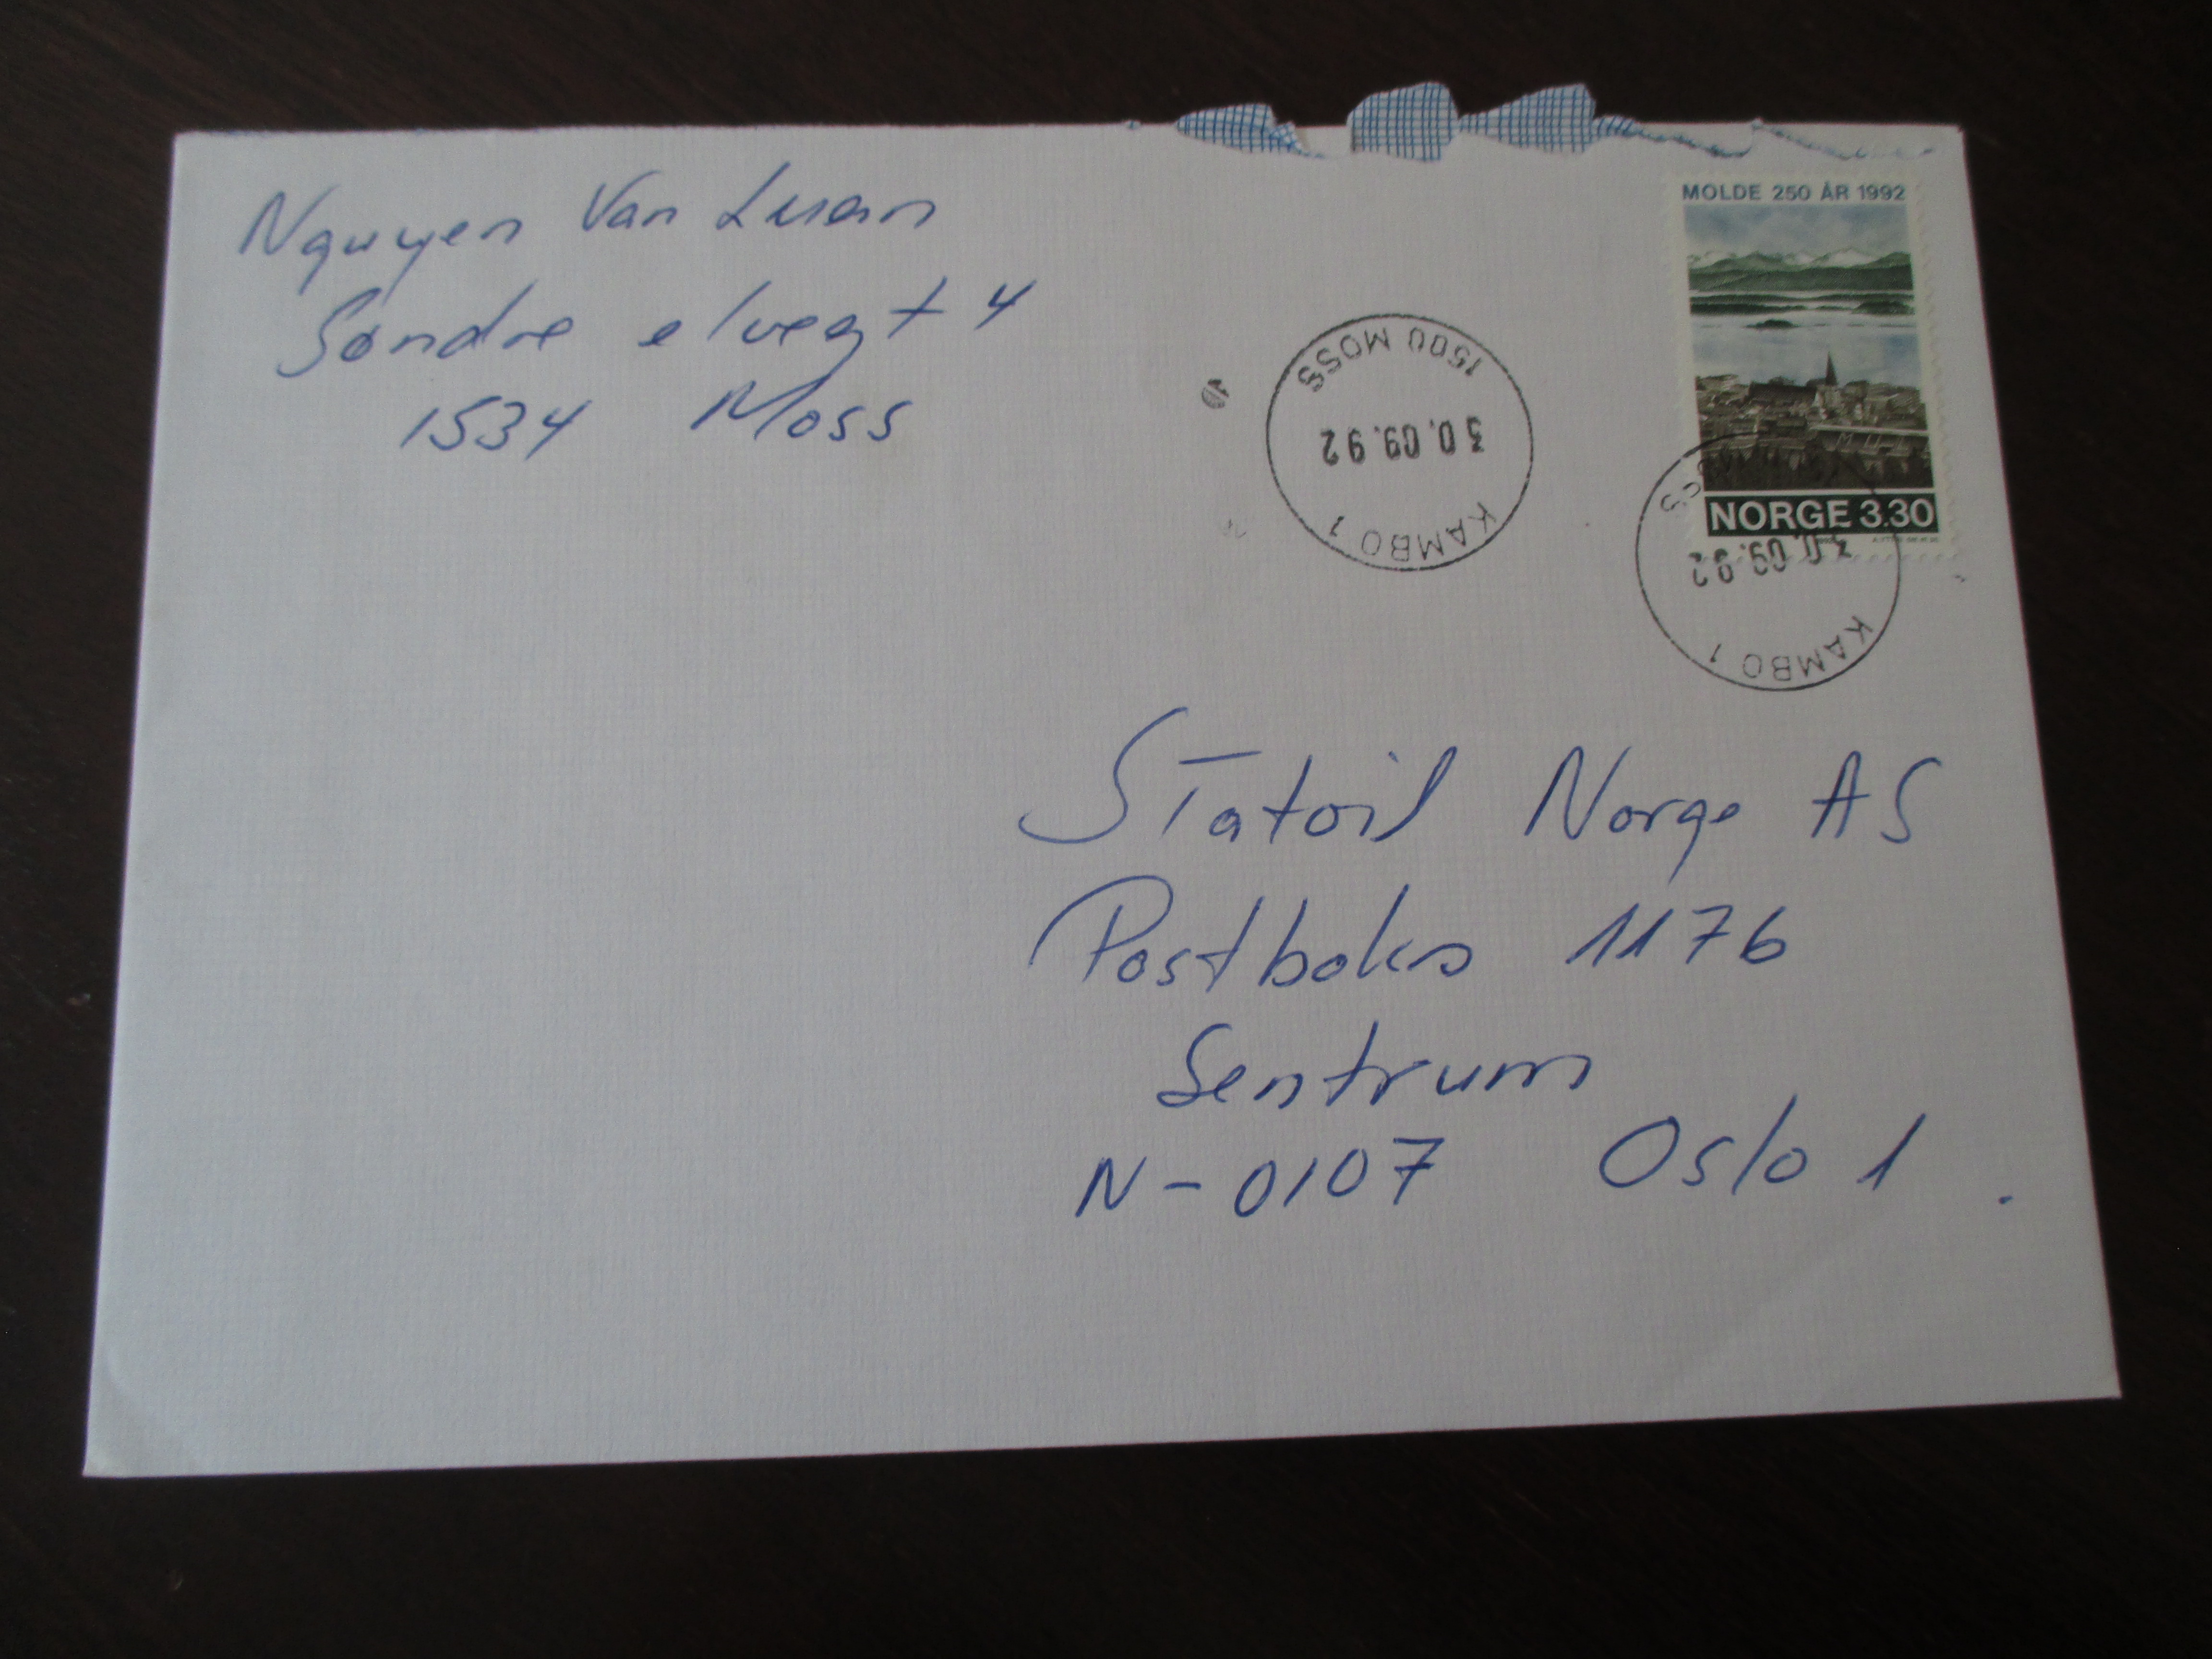 Nguyen Van Luan
Søndre elvegt 4
1534 Moss
MOLDE 250 ÅR 1992
NORGE 3.30
1500 MOSS
30.09.92
KAMBO 1
30.09.92
KAMBO 1
Statoil Norge AS
Postboks 1176
Sentrum
N-0107 Oslo 1.